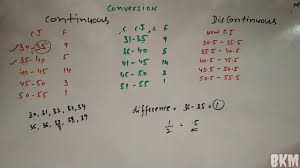 Conversion
Continuous
Discontinuous
C.I F
30-35 9
35-40 5
40-45 14
45-50 3
50-55 1
C.I F
31-35 9
36-40 5
41-45 14
46-50 3
51-55 1
New C.I
30.5-35.5
35.5-
40.5-
45.5-
50.5-55.5
30, 31, 32, 33, 34
35, 36, 37, 38, 39
difference = 36-35 = 1
1/2 = .5
BKM